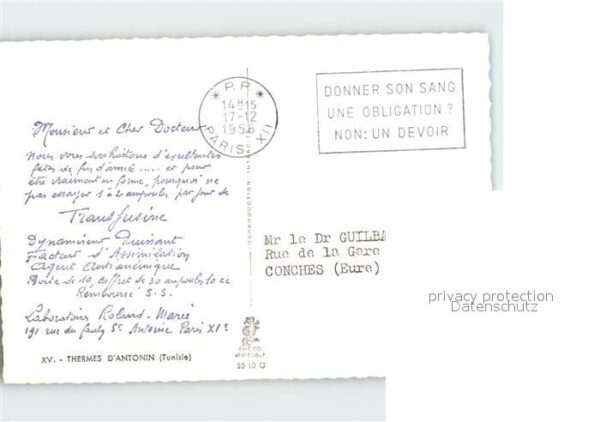 * P.P. *
14H15
17-12
1956
PARIS XII
DONNER SON SANG
UNE OBLIGATION ?
NON: UN DEVOIR
Monsieur et Cher Docteur
Nous vous souhaitons d'excellentes
fêtes de fin d'année ..... et pour
être vraiment en forme, pourquoi ne
pas essayer 1 à 2 ampoules par jour de
Transfusine
Dynamiseur Puissant
Facteur d'Assimilation
Agent Antianémique
Boite de 10, coffret de 20 ampoules 10 cc
Remboursé S.S.
Laboratoire Roland-Marie
191 rue du faubg St Antoine Paris XIe
XV. - THERMES D'ANTONIN (Tunisie)
REPRODUCTION
VÉRITABLE
10 10 G
Mr le Dr GUILBA
Rue de la Gare
CONCHES (Eure)
privacy protection
Datenschutz